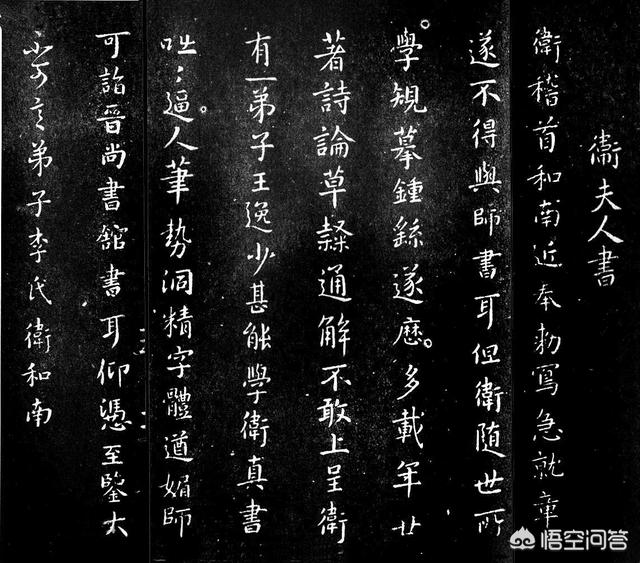 衛夫人書
衛稽首和南近奉勅寫急就章
遂不得與師書耳但衛隨世所
學規摹鍾繇遂歷多載年廿
著詩論草隸通解不敢上呈衛
有一弟子王逸少甚能學衛真書
咄〻逼人筆勢洞精字體遒媚師
可詣晉尚書館書耳仰憑至鑒大
不可言弟子李氏衛和南
悟空问答